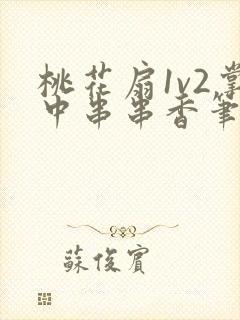 桃花扇1v2掌
中串串香筆
蘇俊賓